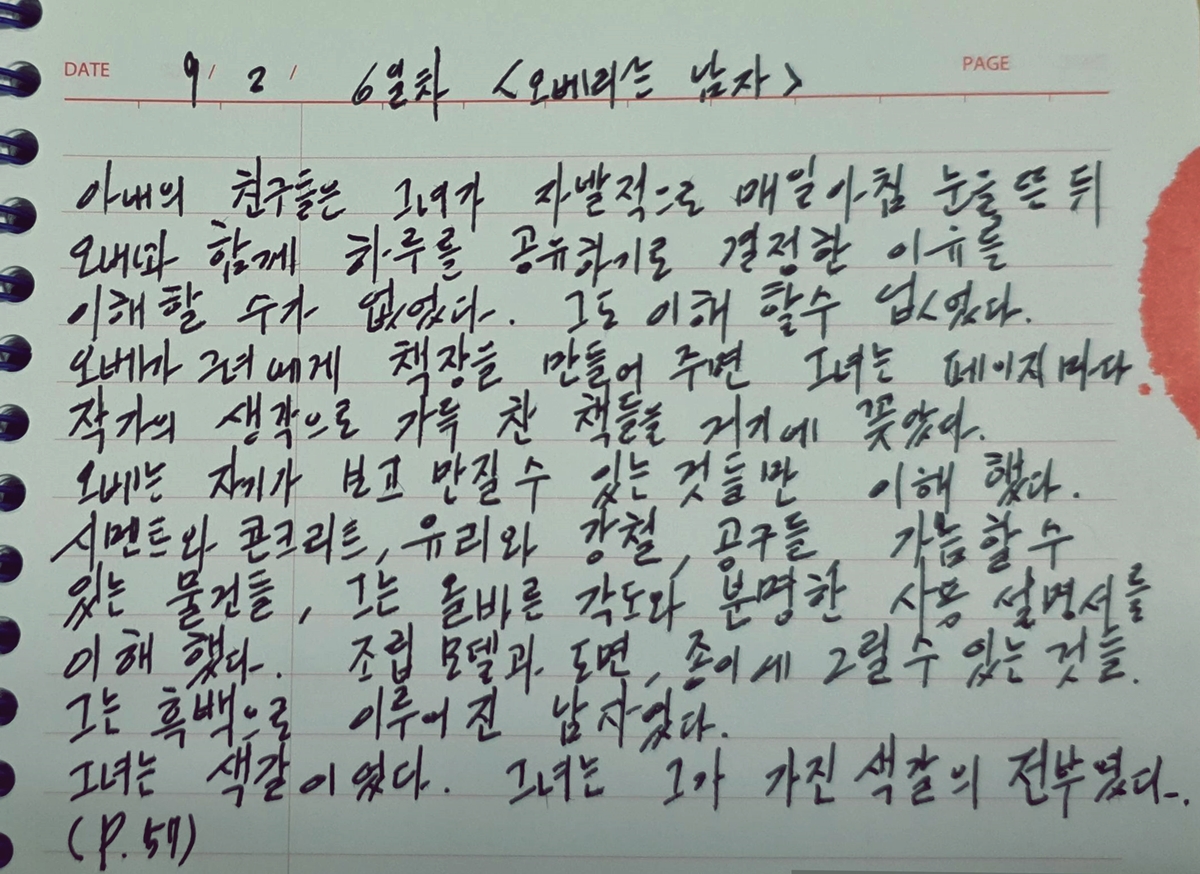 DATE 9 / 2 / 6일차 <오베라는 남자> PAGE
아내의 친구들은 그녀가 자발적으로 매일아침 눈을 뜬 뒤
오베과 함께 하루를 공유하기로 결정한 이유를
이해할 수가 없었다. 그도 이해 할수 없었다.
오베가 그녀에게 책장을 만들어 주면 그녀는 페이지마다
작가의 생각으로 가득 찬 책들을 거기에 꽂았다.
오베는 자기가 보고 만질수 있는 것들만 이해 했다.
시멘트와 콘크리트, 유리와 강철, 공구들, 가늠할 수
있는 물건들, 그는 올바른 각도와 분명한 사용 설명서를
이해 했다. 조립 모델과 도면, 종이에 그릴 수 있는 것들.
그는 흑백으로 이루어 진 남자였다.
그녀는 색깔이었다. 그녀는 그가 가진 색깔의 전부였다.
(P.57)